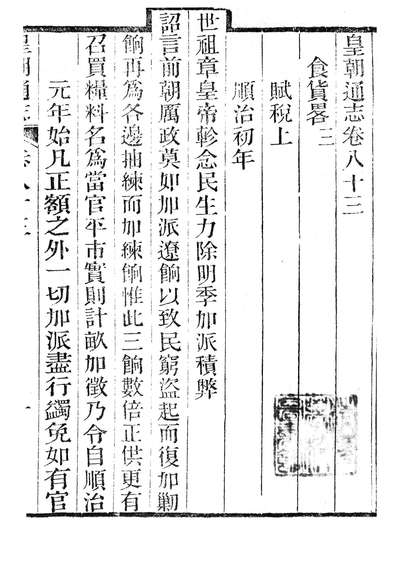 皇朝通志卷八十三
食貨畧三
賦稅上
順治初年
世祖章皇帝軫念民生力除明季加派積弊
詔言前朝厲政莫如加派遼餉以致民窮盜起而復加勦
餉再爲各邊抽練而加練餉惟此三餉數倍正供更有
召買糧料名爲當官平市實則計畝加徵乃令自順治
元年始凡正額之外一切加派盡行蠲免如有官
皇朝通志 卷八十三 一